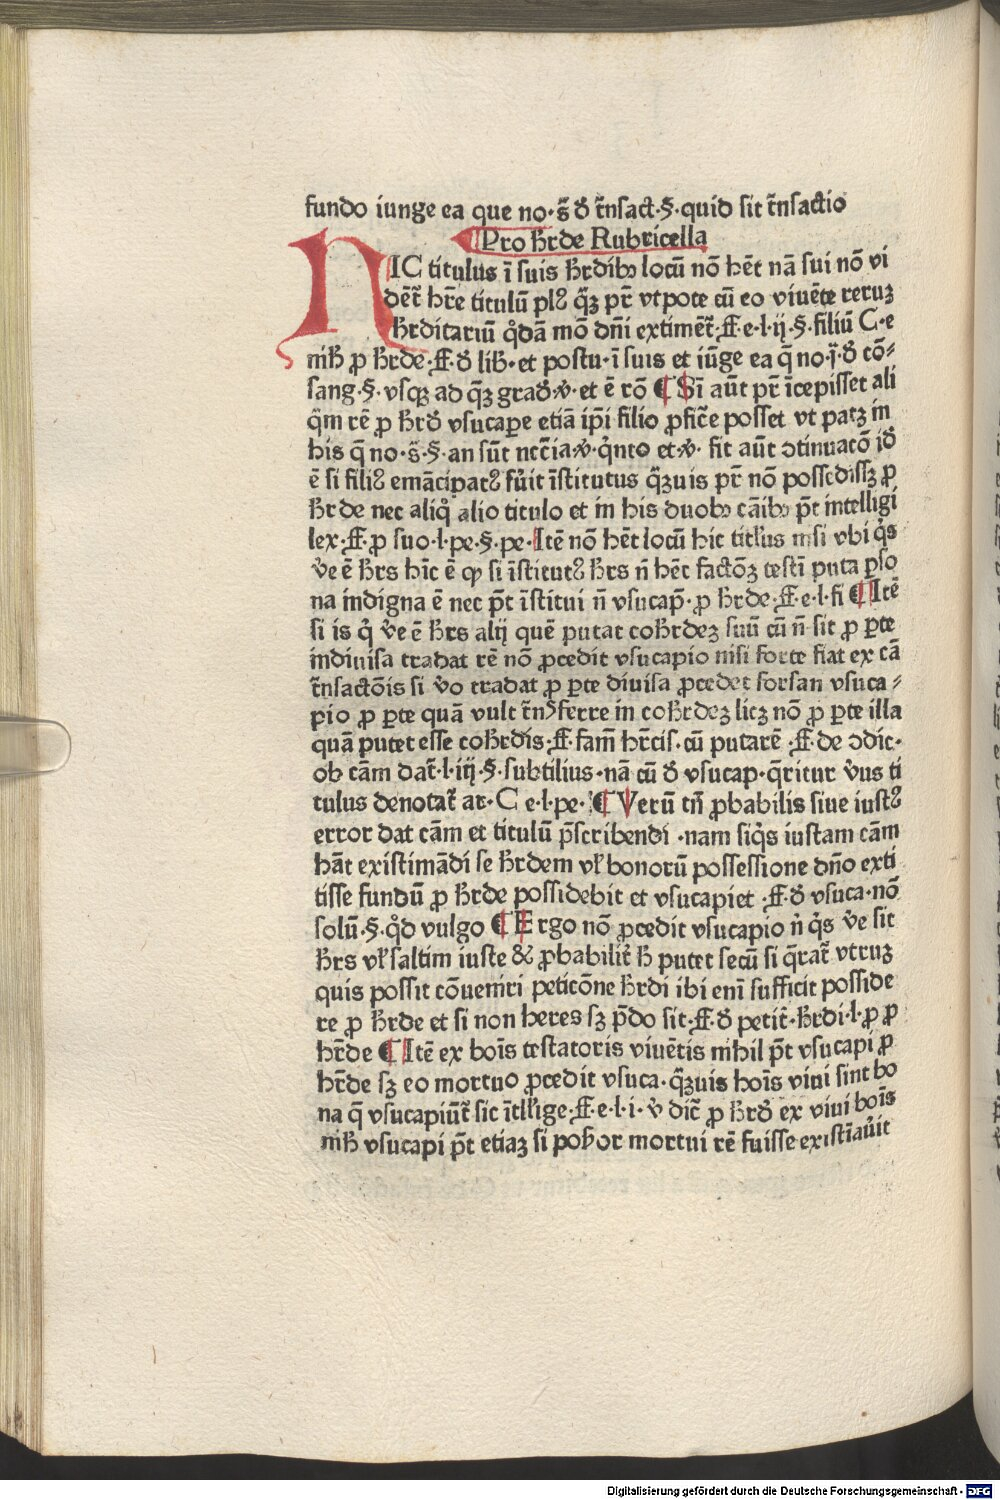 fundo iunge ea que no·s̄ ð t̄nsact·§·quid sit t̄nsactio
Pro hr̄de Rubricella
HIC titulus ī suis hr̄dibꝫ locū nō hēt nā sui nō vi
dēt̄ hr̄e titulū plꝰ qꝫ pr̄ vtpote cū eo viuēte reruꝫ
hr̄ditariū qͦdā mō dn̄i extimēt̄·ff·e·l·ij·§·filiū C·e
nih̄ ꝓ hr̄de·ff·ð lib̄·et postu·ī suis et iūge ea q̄ no·j̄·ð cō⸗
sang·§·vsqꝫ ad qꝫ grað·v·et ē rō ¶ Si aūt pr̄ īcepisset ali
q̄m rē ꝓ hr̄ð vsucape etiā ip̄i filio ꝓfic̄e posset vt patꝫ in
his q̄ no·s̄·§·an sūt nec̄ia·v·qͥnto et·v· fit aūt ɔtinuacō ið
ē si filiꝰ emācipatꝰ fūit īstitutus q̄ꝫuis pr̄ nō possedissꝫ ꝓ
hr̄de nec aliqͦ alio titulo et in his duobꝫ cāibꝫ pt̄ intelligi
lex·ff·ꝓ suo·l·pe·§·pe·Itē nō hēt locū hic titl̄us nisi vbi qͥs
v̄e ē hr̄s hīc ē ꝙ si īstitutꝰ hr̄s n̄ hēt factōꝫ testī puta ꝑso
na indigna ē nec pt̄ īstitui n̄ vsucap̄·ꝓ hr̄de·ff·e·l·fi ¶ Itē
si is qͥ v̄e ē hr̄s alij quē putat cohr̄deꝫ suū cū n̄ sit ꝓ ꝑte
indiuisa tradat rē nō ꝓcedit vsucapio nisi forte fiat ex cā
t̄nsactōis si v̄o tradat ꝓ ꝑte diuisa ꝓcedet forsan vsuca⸗
pio ꝓ ꝑte quā vult t̄nsferre in cohr̄deꝫ licꝫ nō ꝓ ꝑte illa
quā putet esse cohr̄dis·ff·fam̄ hr̄cis·cū putarē·ff·de ɔdic·
ob cām dat̄·l·iij·§·subtilius·nā cū ð vsucap·q̄ritur v̄us ti
tulus denotat̄ ar·C e·l·pe· ¶ Verū tn̄ ꝓbabilis siue iustꝰ
error dat cām et titulū p̄scribendi ·nam siqͥs iustam cām
hāt existimādi se hr̄dem vl̄ bonorū possessione dn̄o exti
tisse fundū ꝓ hr̄de possidebit et vsucapiet·ff·ð vsuca·nō
solū·§·qͦd vulgo ¶ Ergo nō ꝓcedit vsucapio n̄ qͥs v̄e sit
hr̄s vl̄ saltim iuste & ꝓbabilit̄ h̄ putet secū si q̄rat̄ vtruꝫ
quis possit cōueniri peticōne hr̄di ibi enī sufficit posside
re ꝓ hr̄de et si non heres sꝫ p̄do sit·ff·ð petit̄·hr̄di·l·ꝓ ꝓ
hr̄de ¶ Itē ex boīs testatoris viuētis nihil pt̄ vsucapi ꝓ
hr̄de sꝫ eo mortuo ꝓcedit vsuca·q̄ꝫuis hoīs viui sint bo
na q̄ vsucapiūt̄ sic ītl̄lige·ff·e·l·i·v̄ dic̄ ꝓ hr̄ð ex viui boīs
nih̄ vsucapi pt̄ etiaꝫ si poh̄or mortui rē fuisse existīaūit
Digitalisierung gefördert durch die Deutsche Forschungsgemeinschaft - DFG